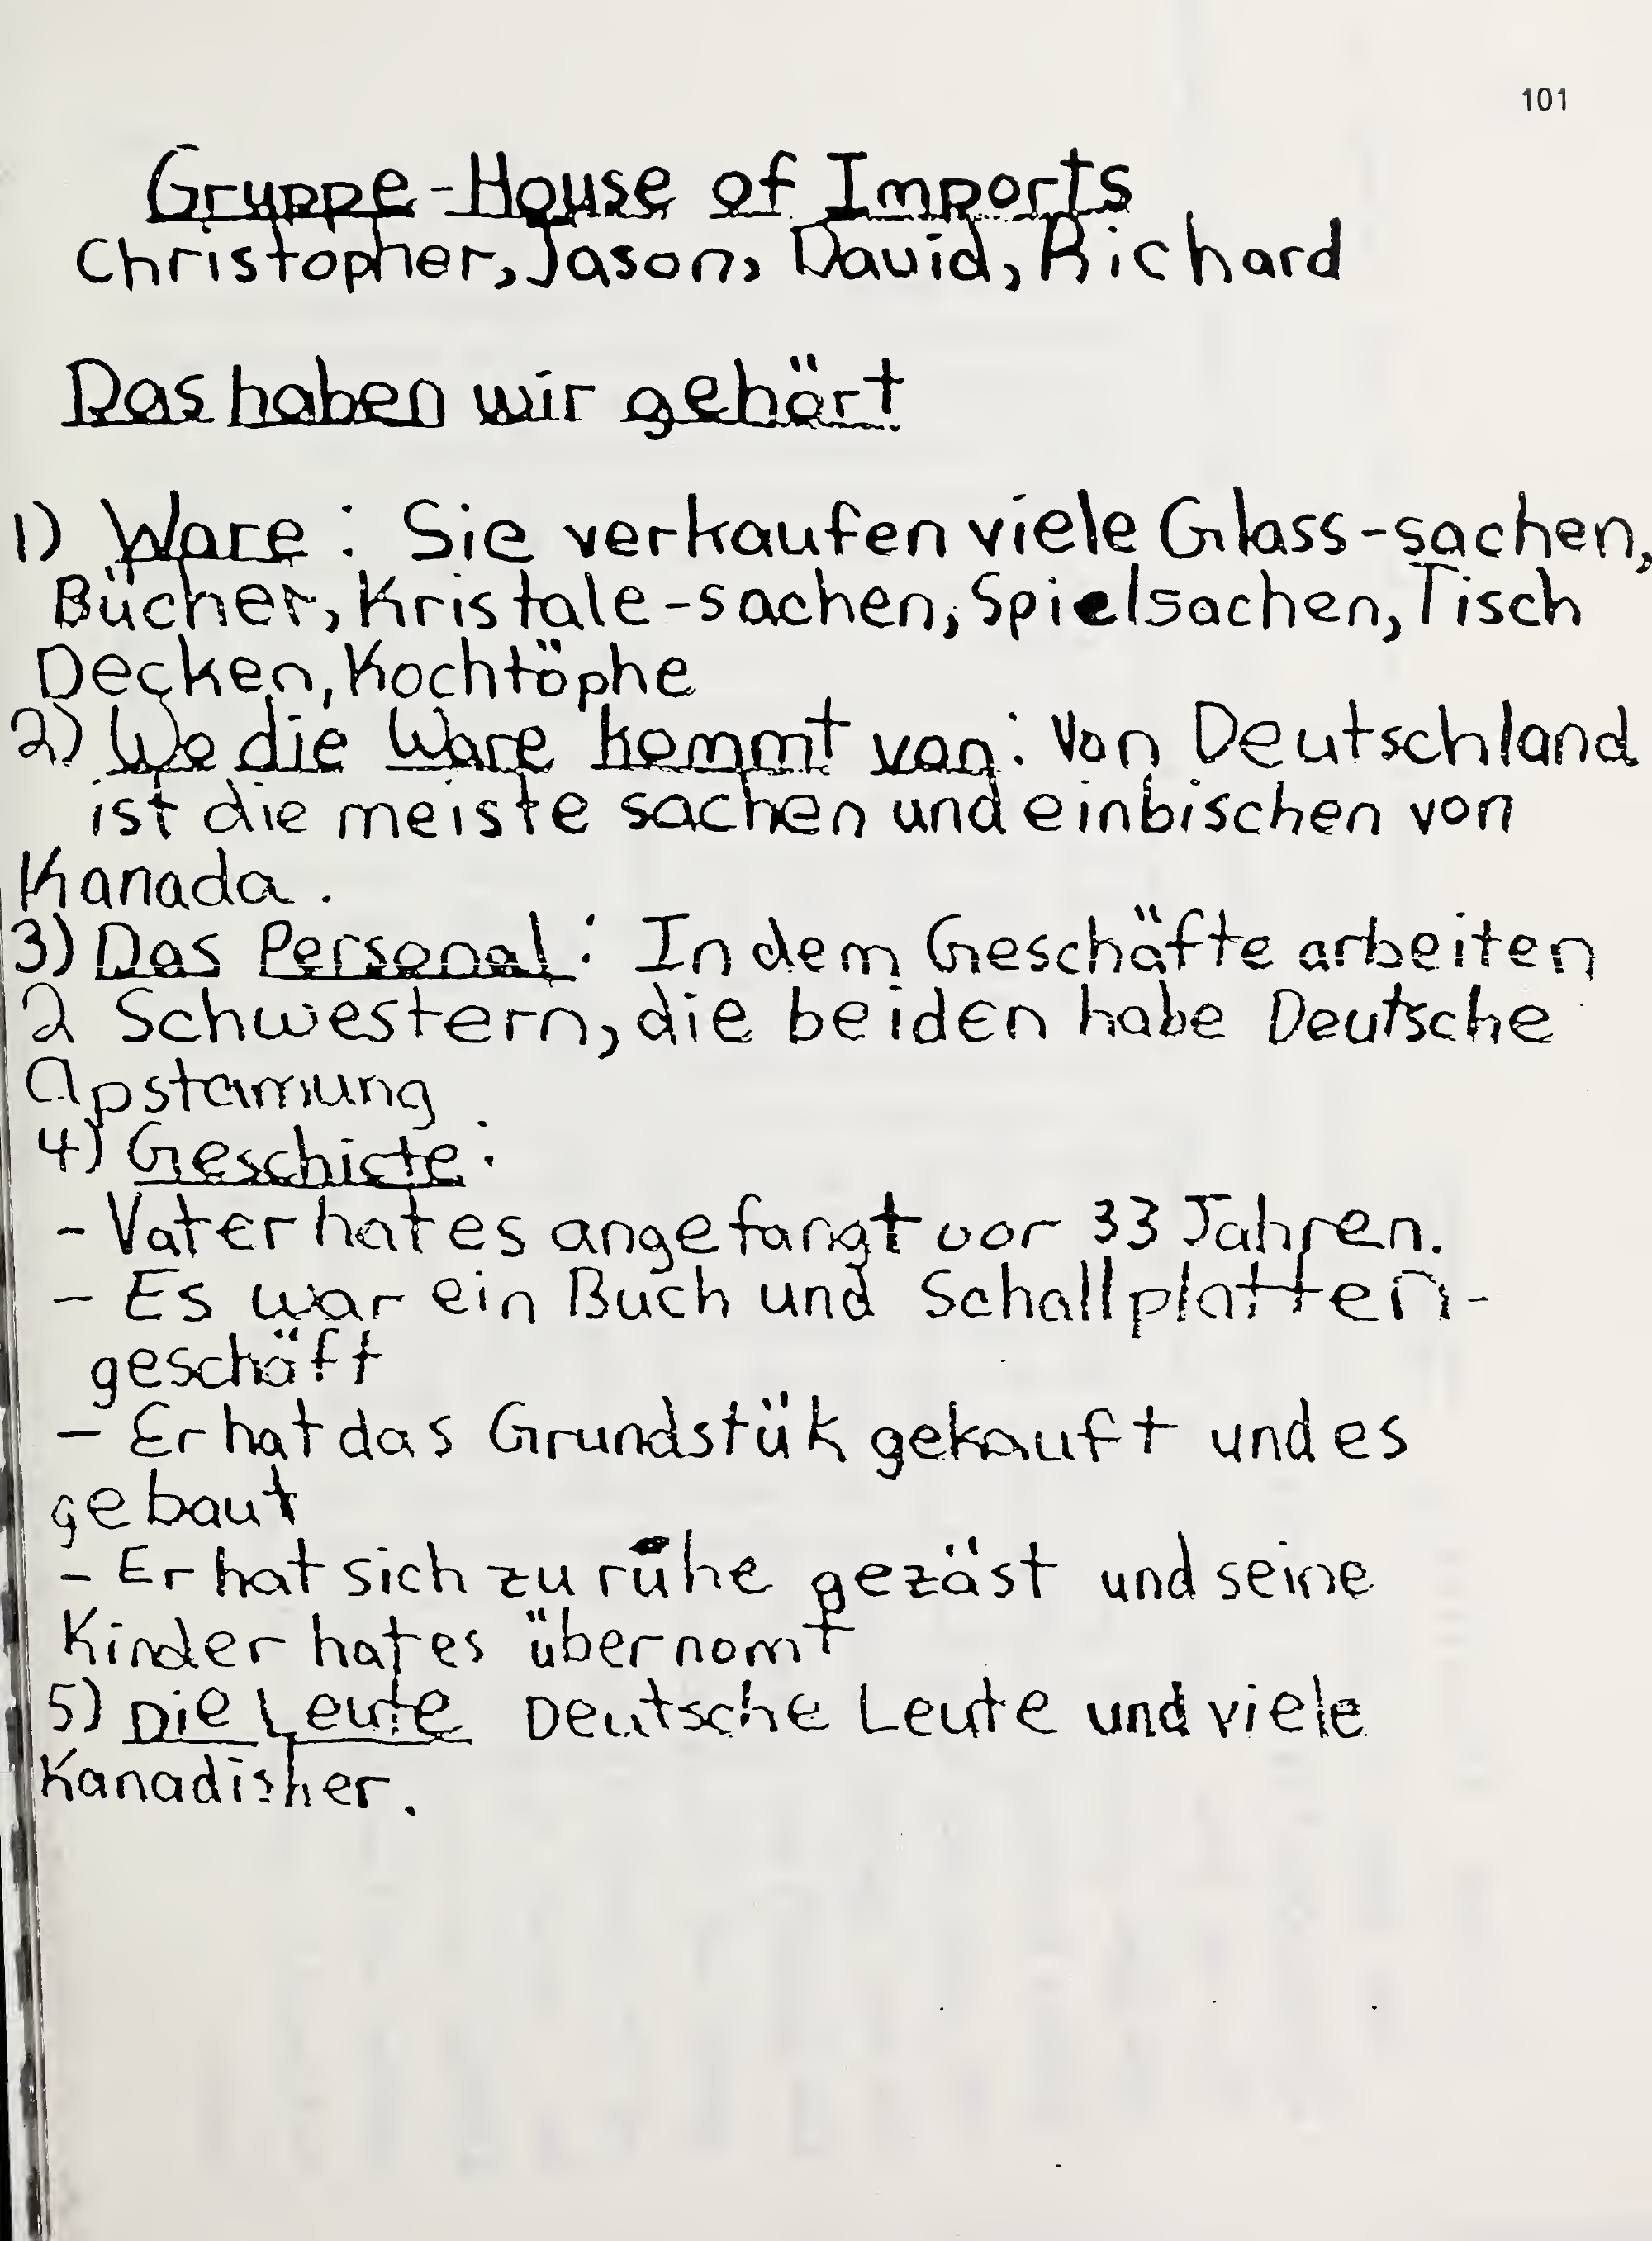 101
Gruppe-House of Imports
Christopher, Jason, David, Richard
Das haben wir gehört
1) Ware: Sie verkaufen viele Glass-sachen,
Bücher, Kristale-sachen, Spielsachen, Tisch
Decken, Kochtöphe
2) Wo die Ware kommt von: Von Deutschland
ist die meiste sachen und einbischen von
Kanada.
3) Das Personal: In dem Geschäfte arbeiten
2 Schwestern, die beiden habe Deutsche
Apstamung
4) Geschicte:
- Vater hat es angefangt vor 33 Jahren.
- Es war ein Buch und Schallplatten-
geschäft
- Er hat das Grundstük gekauft und es
gebaut
- Er hat sich zu rühe gezäst und seine
Kinder hat es übernomt
5) Die Leute Deutsche Leute und viele
Kanadisher.